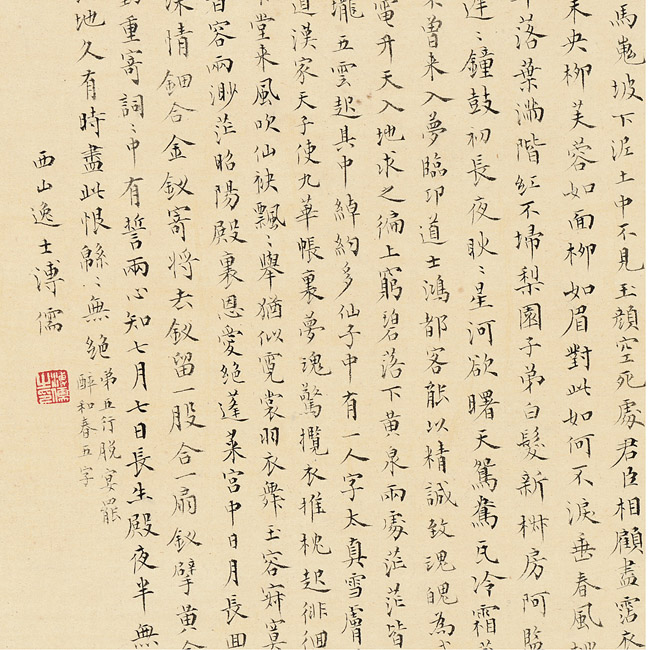 馬嵬坡下泥土中不見玉顏空死處君臣相顧盡霑衣
未央柳芙蓉如面柳如眉對此如何不淚垂春風
落葉滿階紅不掃梨園子弟白髮新椒房阿監
遲〻鐘鼓初長夜耿〻星河欲曙天鴛鴦瓦冷霜
不曾來入夢臨邛道士鴻都客能以精誠致魂魄為
電升天入地求之徧上窮碧落下黃泉兩處茫茫皆
瓏五雲起其中綽約多仙子中有一人字太真雪膚
道漢家天子使九華帳裏夢魂驚攬衣推枕起徘徊
堂来風吹仙袂飄〻舉猶似霓裳羽衣舞玉容寂寞
容兩渺茫昭陽殿裏恩愛絕蓬萊宮中日月長回
深情鈿合金釵寄將去釵留一股合一扇釵擘黃
重寄詞〻中有誓兩心知七月七日長生殿夜半無
地久有時盡此恨緜〻無絕
第五行脫宴罷
醉和春五字
西山逸士溥儒